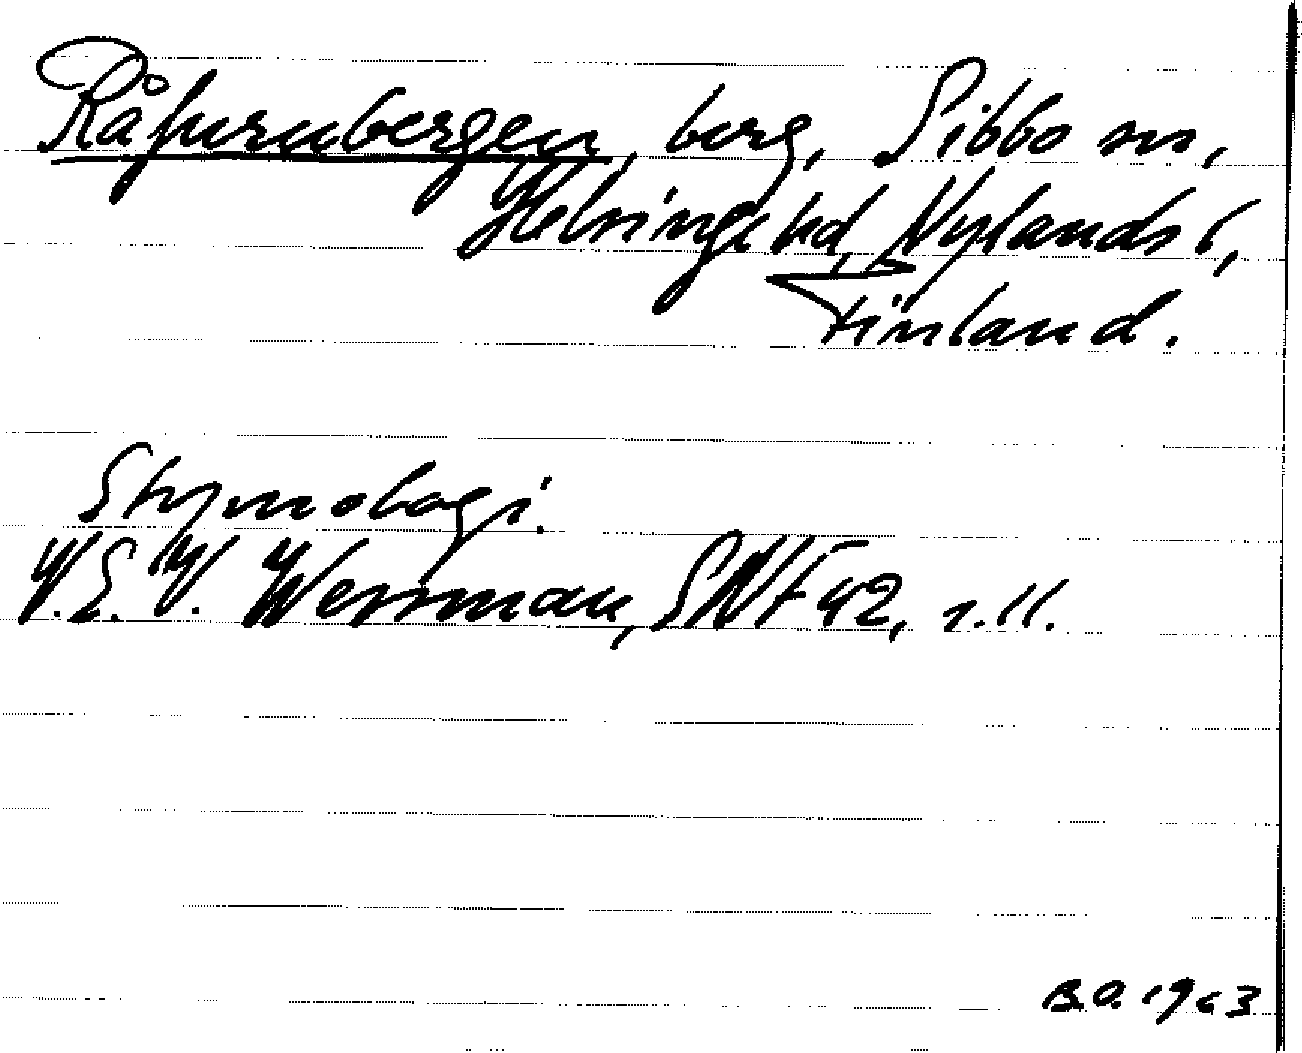 Råfurubergen, berg, Sibbo sn,
Helsinge hd, Nylands l,
Finland.
Etymologi.
V.E.V. Wessman, SNF 42, s. 11.
B.O. 1963